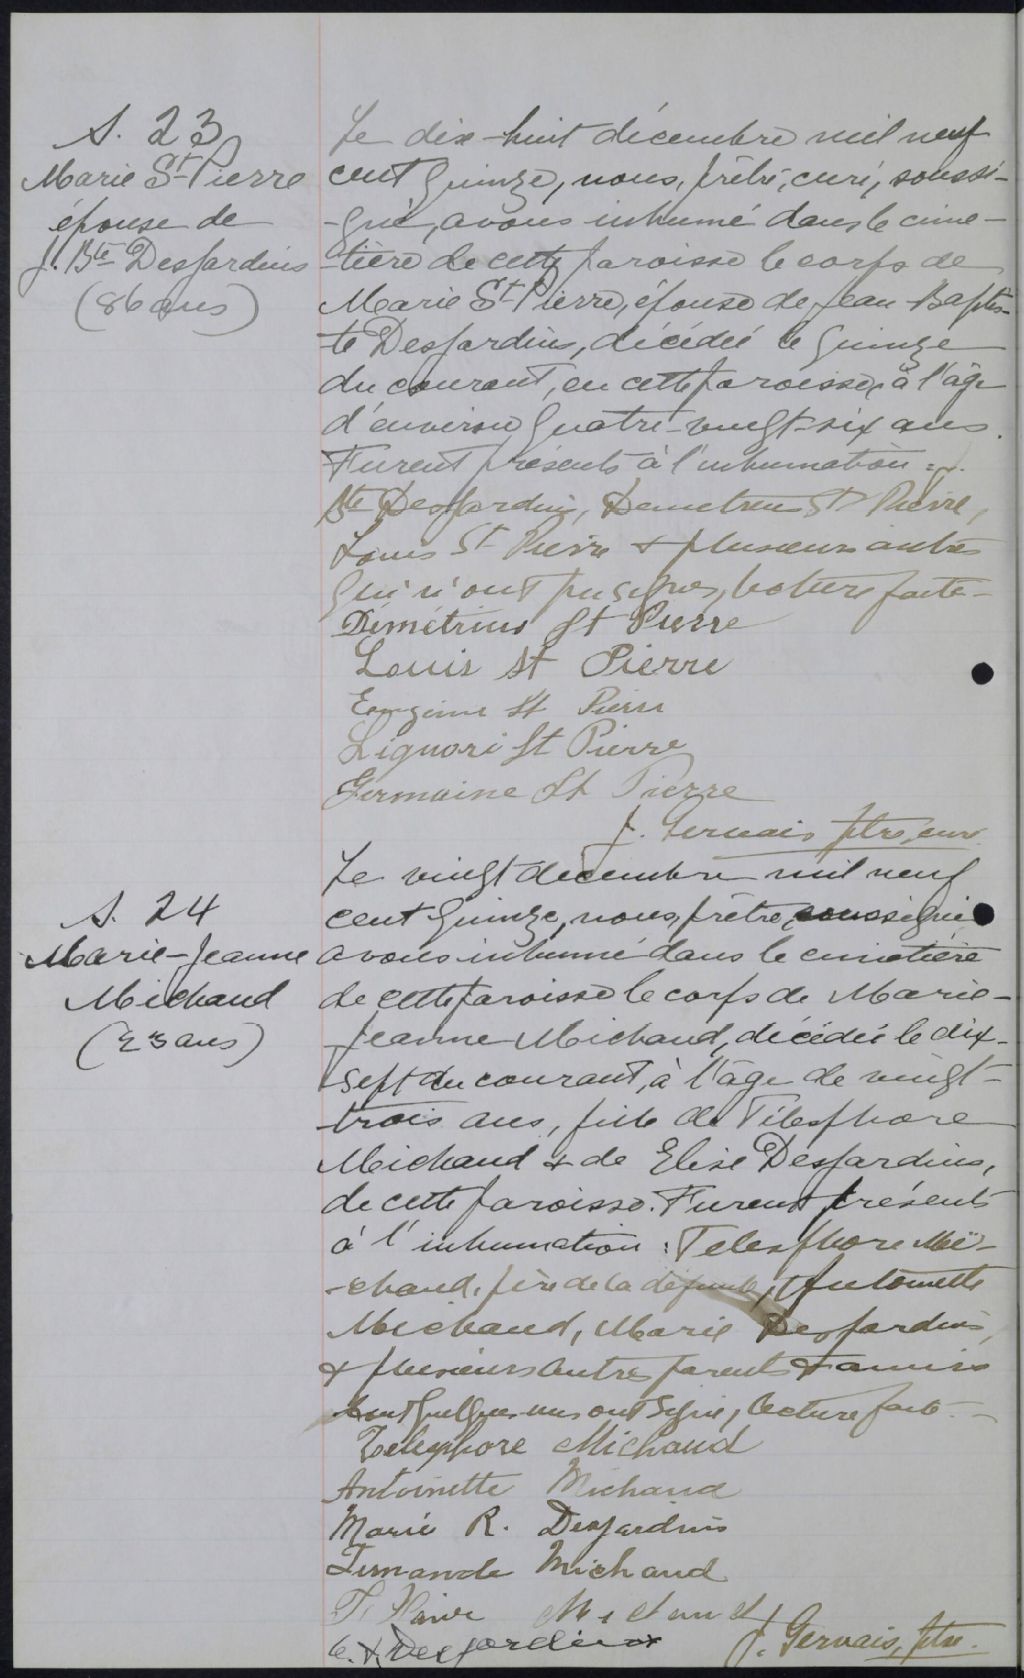 S. 23
Marie St-Pierre
épouse de
J. Bte Desjardins
(86 ans)
Le dix-huit décembre mil neuf
cent quinze, nous, prêtre, curé, soussi-
-gné, avons inhumé dans le cime-
-tière de cette paroisse le corps de
Marie St-Pierre, épouse de Jean-Baptis-
-te Desjardins, décédée le quinze
du courant, en cette paroisse, à l'âge
d'environ quatre-vingt-six ans.
Furent présents à l'inhumation : J.
Bte Desjardins, Demetrius St Pierre,
Louis St Pierre & plusieurs autres
qui n'ont pu signer, lecture faite-
Démétrius St Pierre
Louis St Pierre
St Pierre
Liguori St Pierre
Germaine St Pierre
J. Gervais ptre, curé
S. 24
Marie-Jeanne
Michaud
(23 ans)
Le vingt decembre mil neuf
cent quinze, nous, prêtre, soussigné
avons inhumé dans le cimetière
de cette paroisse le corps de Marie-
Jeanne Michaud, décédée le dix-
sept du courant, à l'âge de vingt-
trois ans, fille de Télesphore
Michaud & de Elise Desjardins,
de cette paroisse. Furent présents
à l'inhumation : Telesphore Mi-
-chaud, père de la défunte, Antoinette
Michaud, Marie Desjardins,
& plusieurs autres parents & amis
dont quelques uns ont signé, lecture faite.-
Telesphore Michaud
Antoinette Michaud
Marie R. Desjardins
Fernande Michaud
Michaud
Desjardins
J. Gervais, ptre.